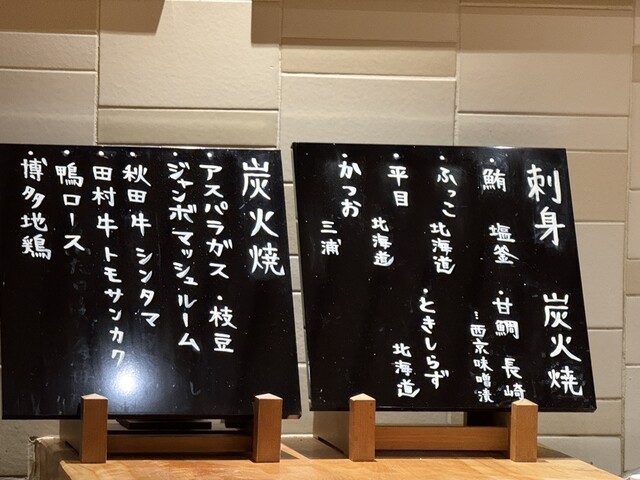 刺身
・鮪 塩釜
・ふっこ 北海道
・平目 北海道
・かつお 三浦
炭火焼
・甘鯛 長崎
…西京味噌漬
・ときしらず 北海道
炭火焼
・アスパラガス・枝豆
・ジャンボマッシュルーム
・秋田牛 シンタマ
・田村牛 トモサンカク
・鴨ロース
・博多地鶏